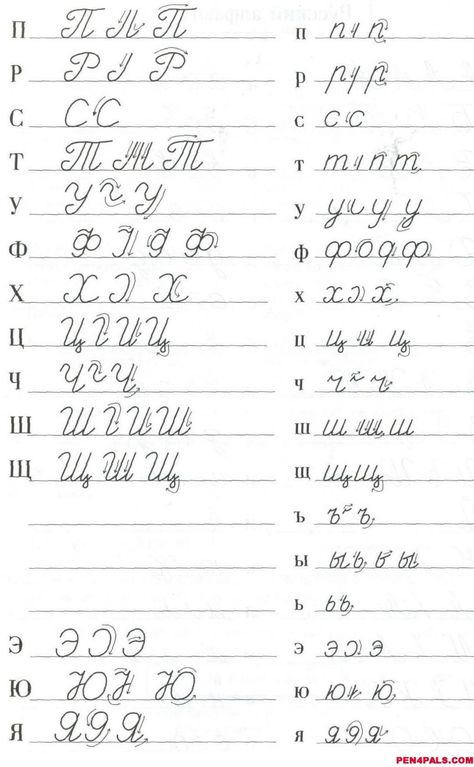 П П П п п п
Р Р Р р р р
С С С с с с
Т Т Т т т т
У У У у у у
Ф Ф Ф ф ф ф
Х Х Х х х х
Ц Ц Ц ц ц ц
Ч Ч Ч ч ч ч
Ш Ш Ш ш ш ш
Щ Щ Щ щ щ щ
ъ ъ ъ
ы ы ы
ь ь ь
Э Э Э э э э
Ю Ю Ю ю ю ю
Я Я Я я я я
PEN4PALS.COM